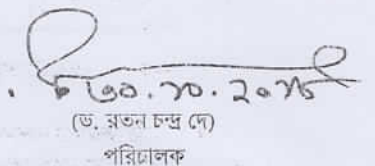 ৩০.১০.২০১৮
(ড. রতন চন্দ্র দে)
পরিচালক